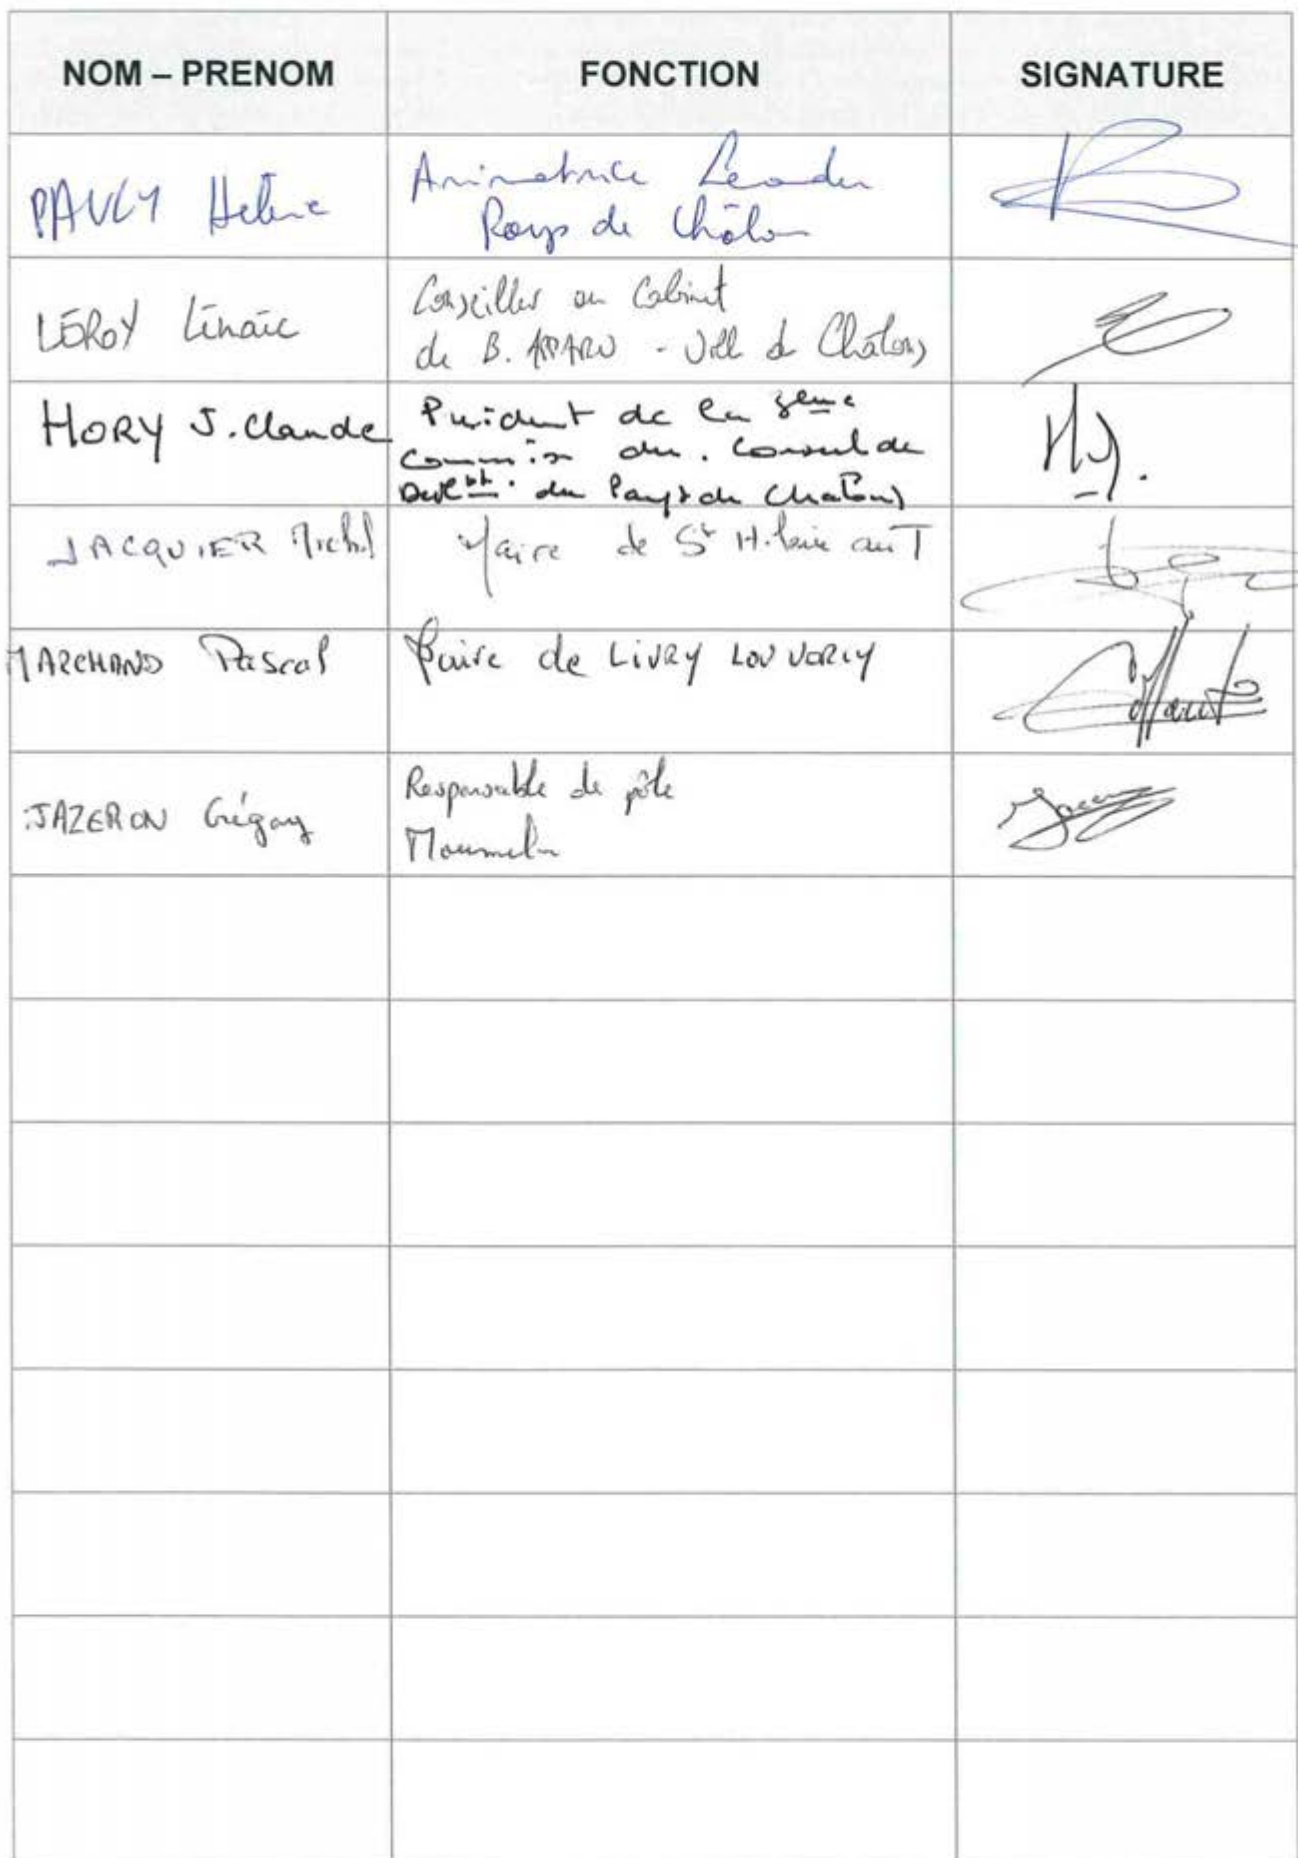 NOM – PRENOM FONCTION SIGNATURE
PAULY Hélène Animatrice Leader
Pays de Châlons
LEROY Linaïc Conseiller au Cabinet
de B. APPARU - Ville de Châlons
HORY J. Claude Président de la 3eme
commission du Conseil de
Devt du Pays de Chalons
JACQUIER Michel Maire de St Hilaire au T
MARCHAND Pascal Maire de LIVRY LOUVERCY
JAZERON Grégory Responsable de pôle
Mourmelon